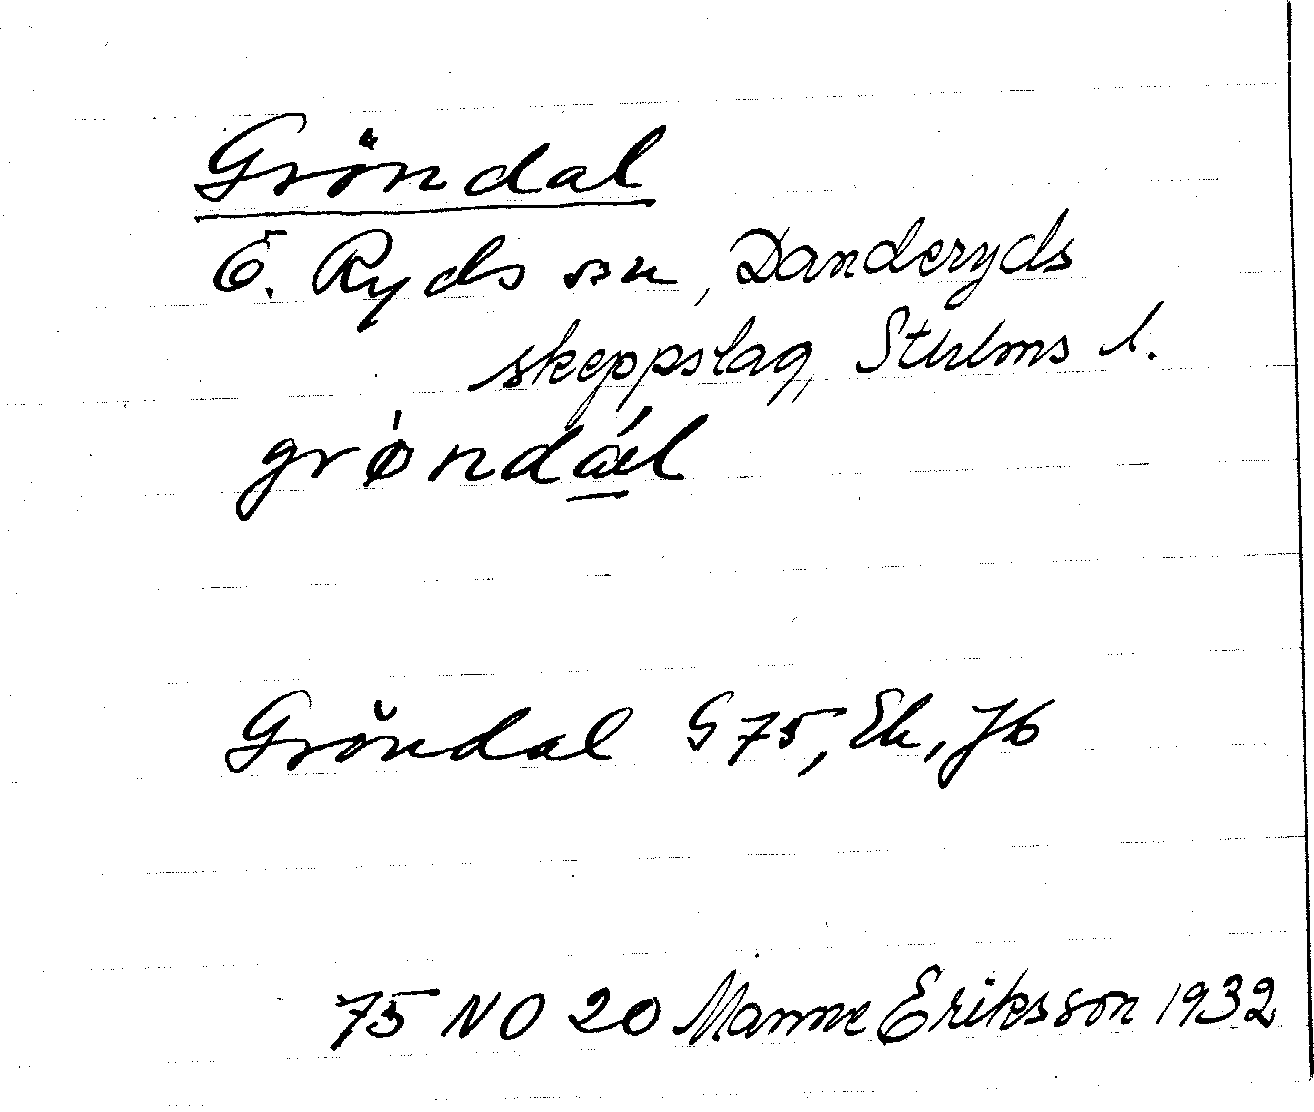 Gröndal
Ö. Ryds sn, Danderyds
skeppslag, Sthlms l.
grøndál
Gröndal G 75, Ek, Jb
75 NO 20 Manne Eriksson 1932